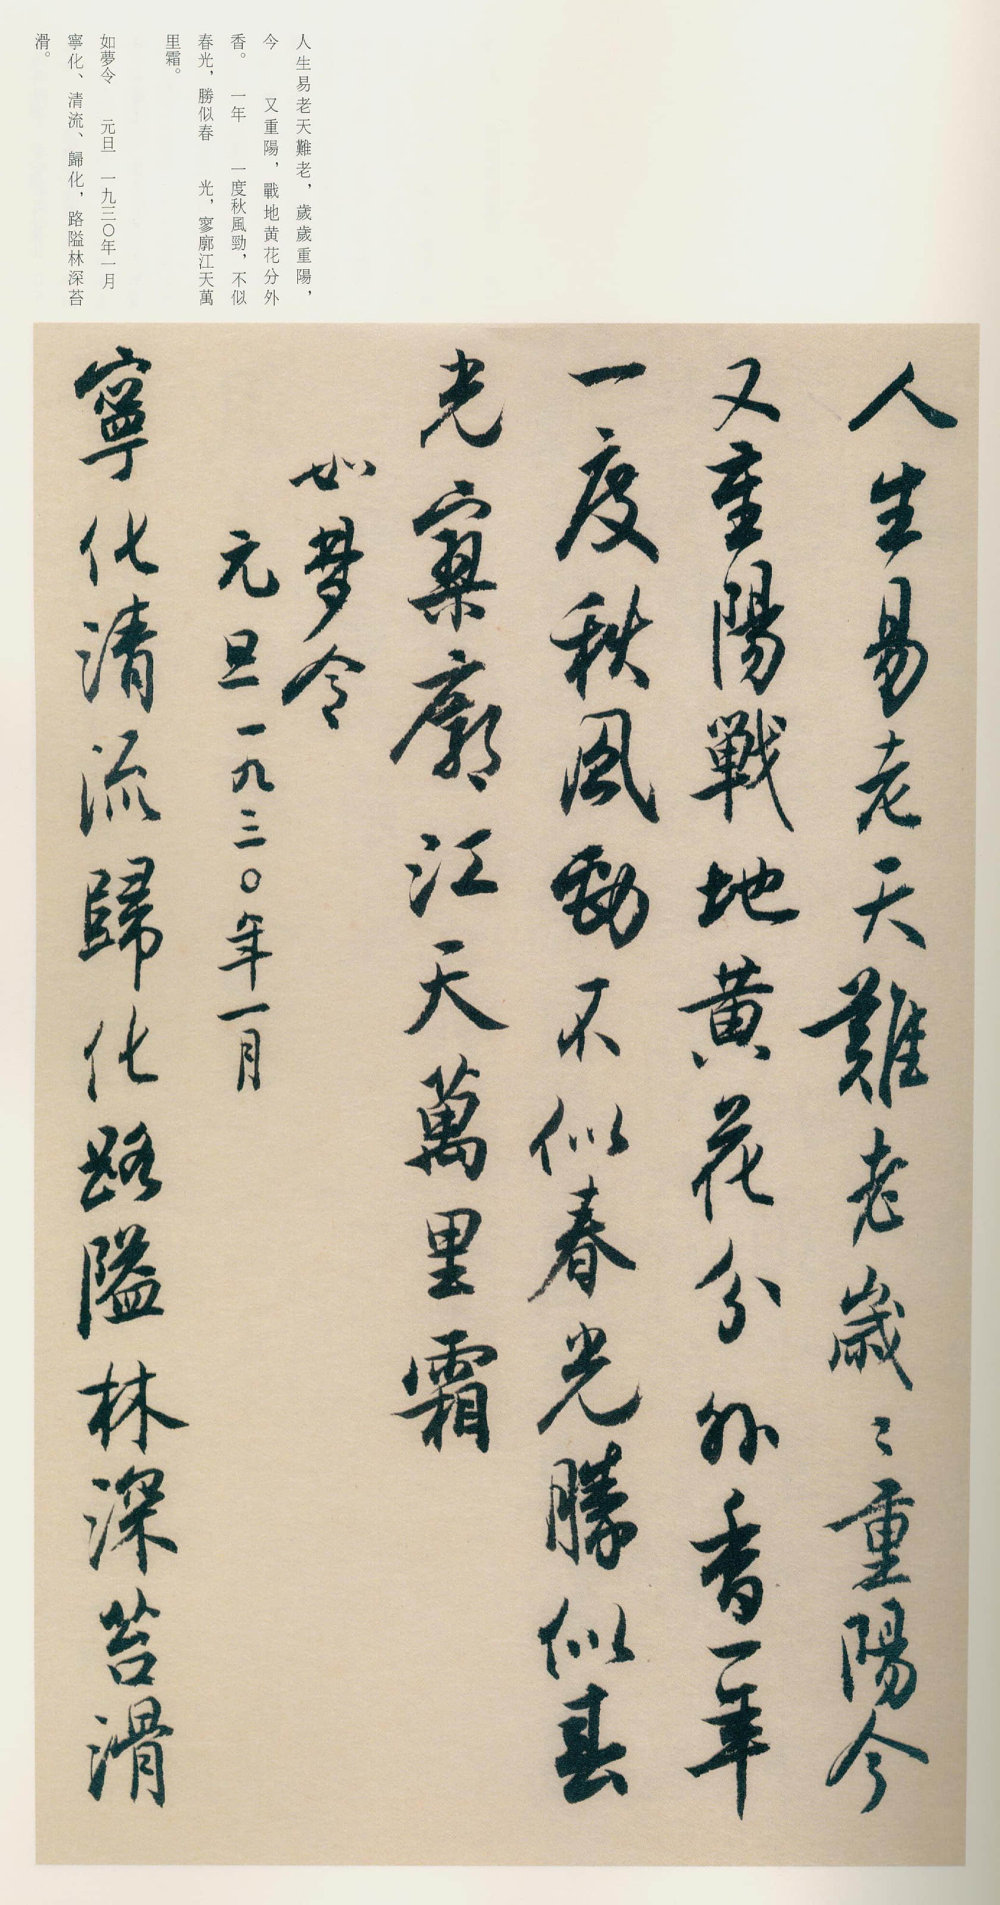 人生易老天難老，歲歲重陽，
今　又重陽，戰地黄花分外
香。　一年　一度秋風勁，不似
春光，勝似春　光，寥廓江天萬
里霜。
如夢令　元旦　一九三〇年一月
寧化、清流、歸化，路隘林深苔
滑。
人生易老天難老歲〻重陽今
又重陽戰地黄花分外香一年
一度秋風勁不似春光勝似春
光寥廓江天萬里霜
如夢令
元旦一九三〇年一月
寧化清流歸化路隘林深苔滑